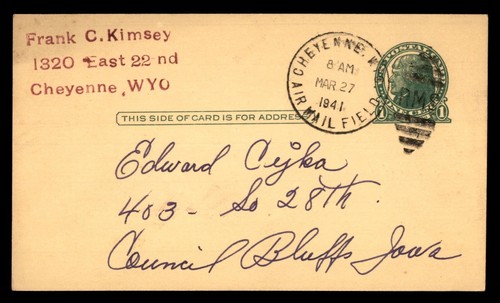 Frank C. Kimsey
1320 East 22 nd
Cheyenne, WYO
CHEYENNE, W
8 AM
MAR 27
1941
AIR MAIL FIELD
1 1
THIS SIDE OF CARD IS FOR ADDRESS
Edward Cejka
403 - So. 28th.
Council Bluffs Iowa